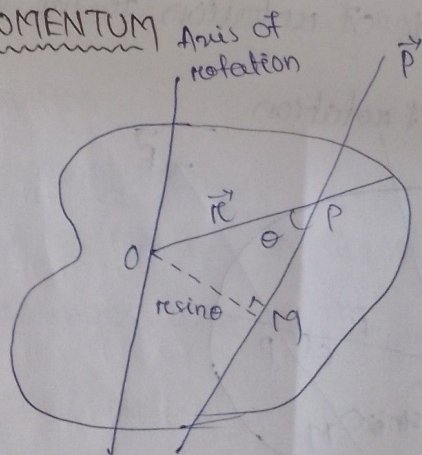 OMENTUM
Axis of
rotation
p⃗
r⃗
θ
P
O
rsinθ
M